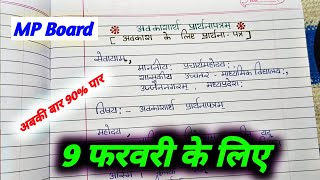 MP Board
अवकाशार्थ प्रार्थनापत्रम्
[ अवकाश के लिए प्रार्थना-पत्र ]
सेवायाम्,
माननीयः प्रचार्यमहोदयः,
शासकीय उच्चतर माध्यमिक विद्यालयः,
उज्जैननगरम्, मध्यप्रदेशः
अबकी बार 90% पार
विषयः- अवकाशार्थ प्रार्थनापत्रम्
महोदय,
9 फरवरी के लिए